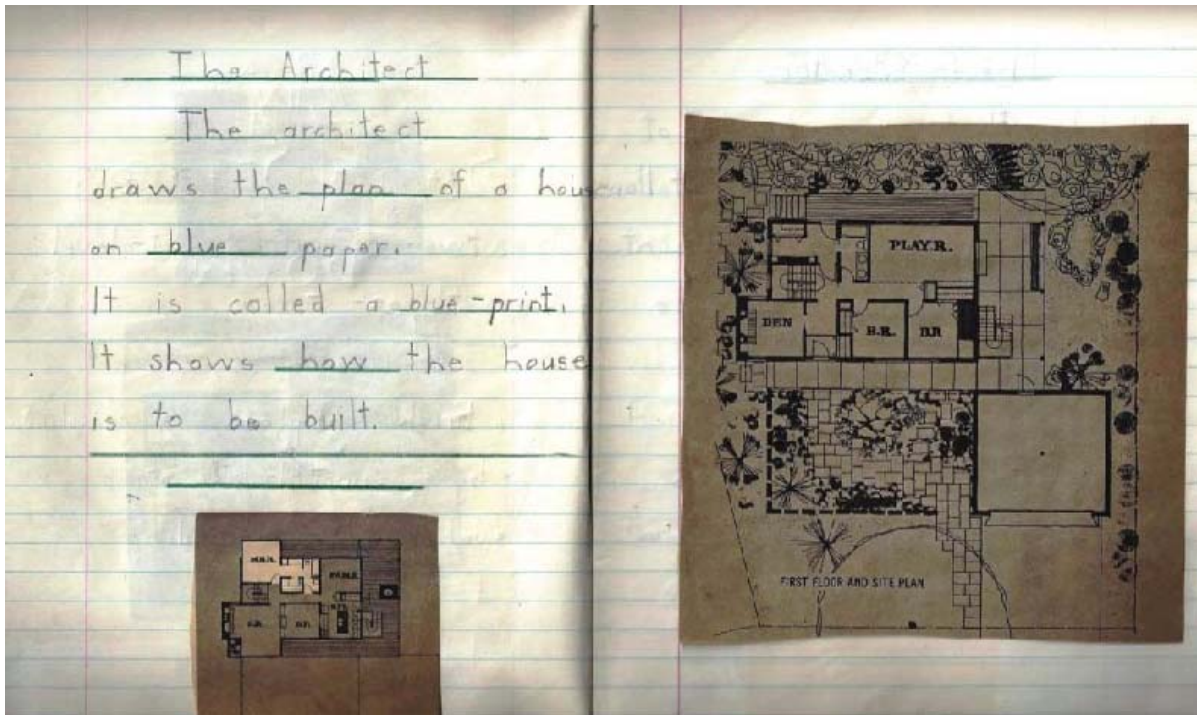 The Architect
The architect
draws the plan of a house
on blue paper.
It is called a blue-print.
It shows how the house
is to be built.
PLAY.R.
DEN
B.R.
B.R
FIRST FLOOR AND SITE PLAN